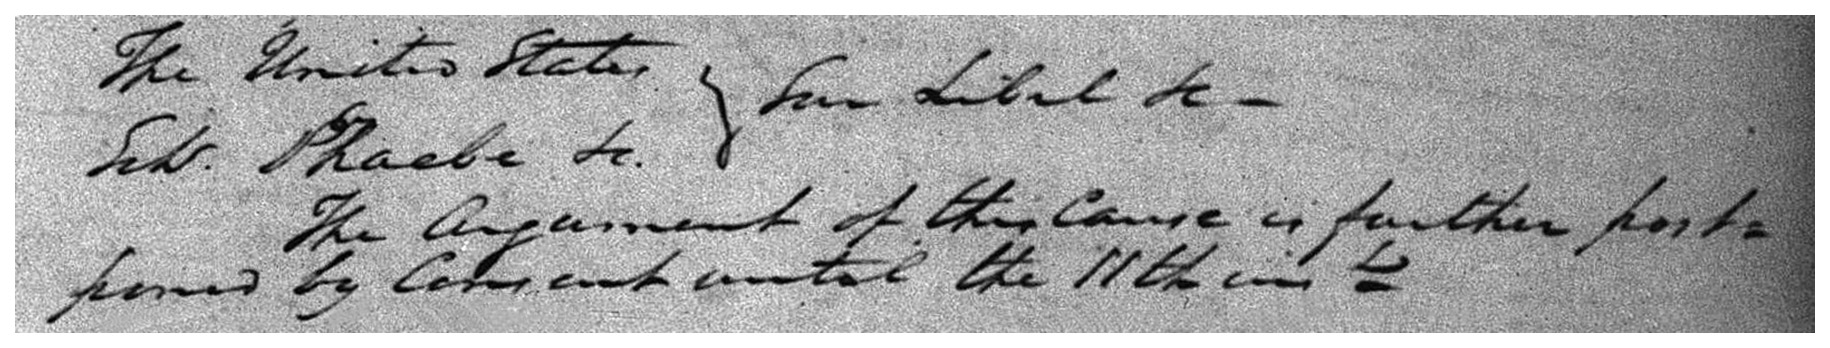 The United States } Sur Libel &c –
Schr. Phaebe &c.
The Argument of this Cause is further post=
poned by Consent until the 11th inst